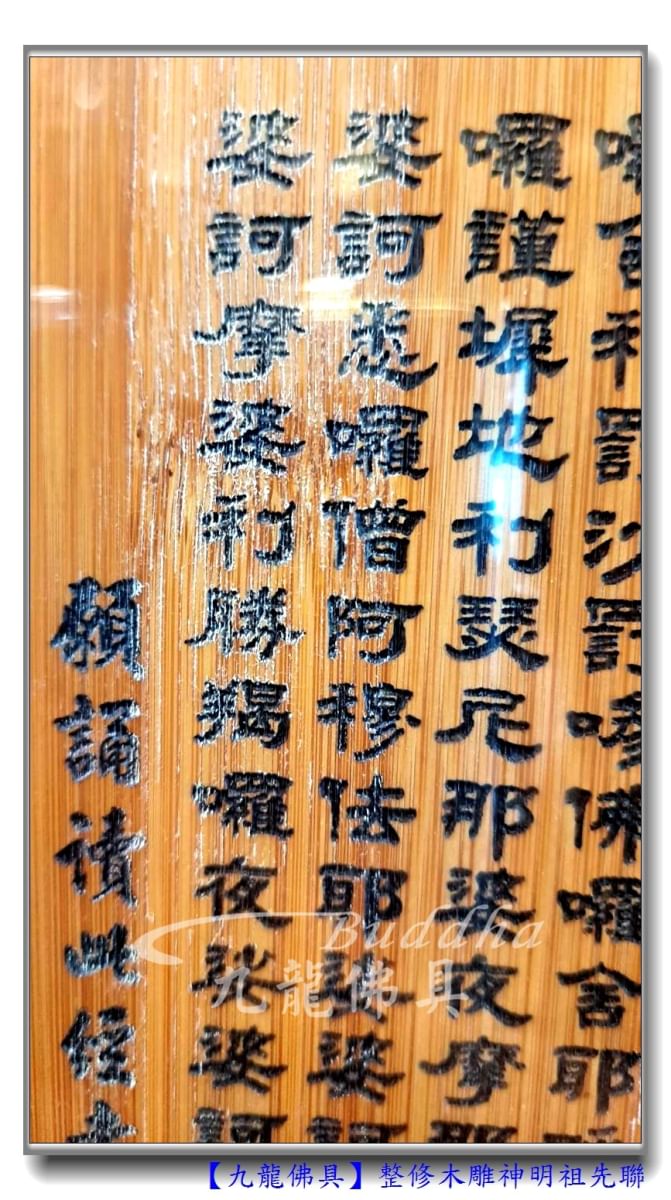 囉舍利罰沙罰嘇佛囉舍耶
囉謹墀地利瑟尼那婆夜摩那
婆訶悉囉僧阿穆佉耶娑婆訶
婆訶摩婆利勝羯囉夜娑婆訶
願誦讀此經
Buddha
九龍佛具
【九龍佛具】整修木雕神明祖先聯